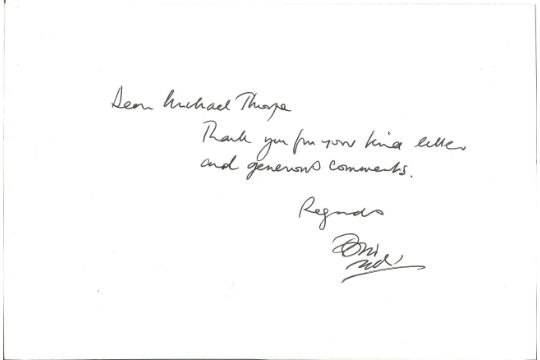 Dear Michael Thorpe
Thank you for your kind letter
and generous comments.
Regards